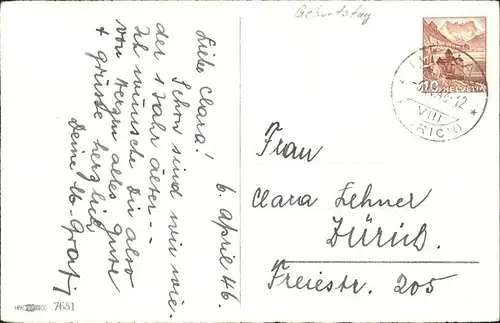 Geburtstag
6. April 46.
Liebe Clara!
Schon sind wir wie-
der 1 Jahr älter --
Ich wünsche Dir also
von Herzen alles Gute
& grüsse herzlich
Deine
Frau
Clara Lehner
Zürich.
Freiestr. 205
HELVETIA
VIII
7651